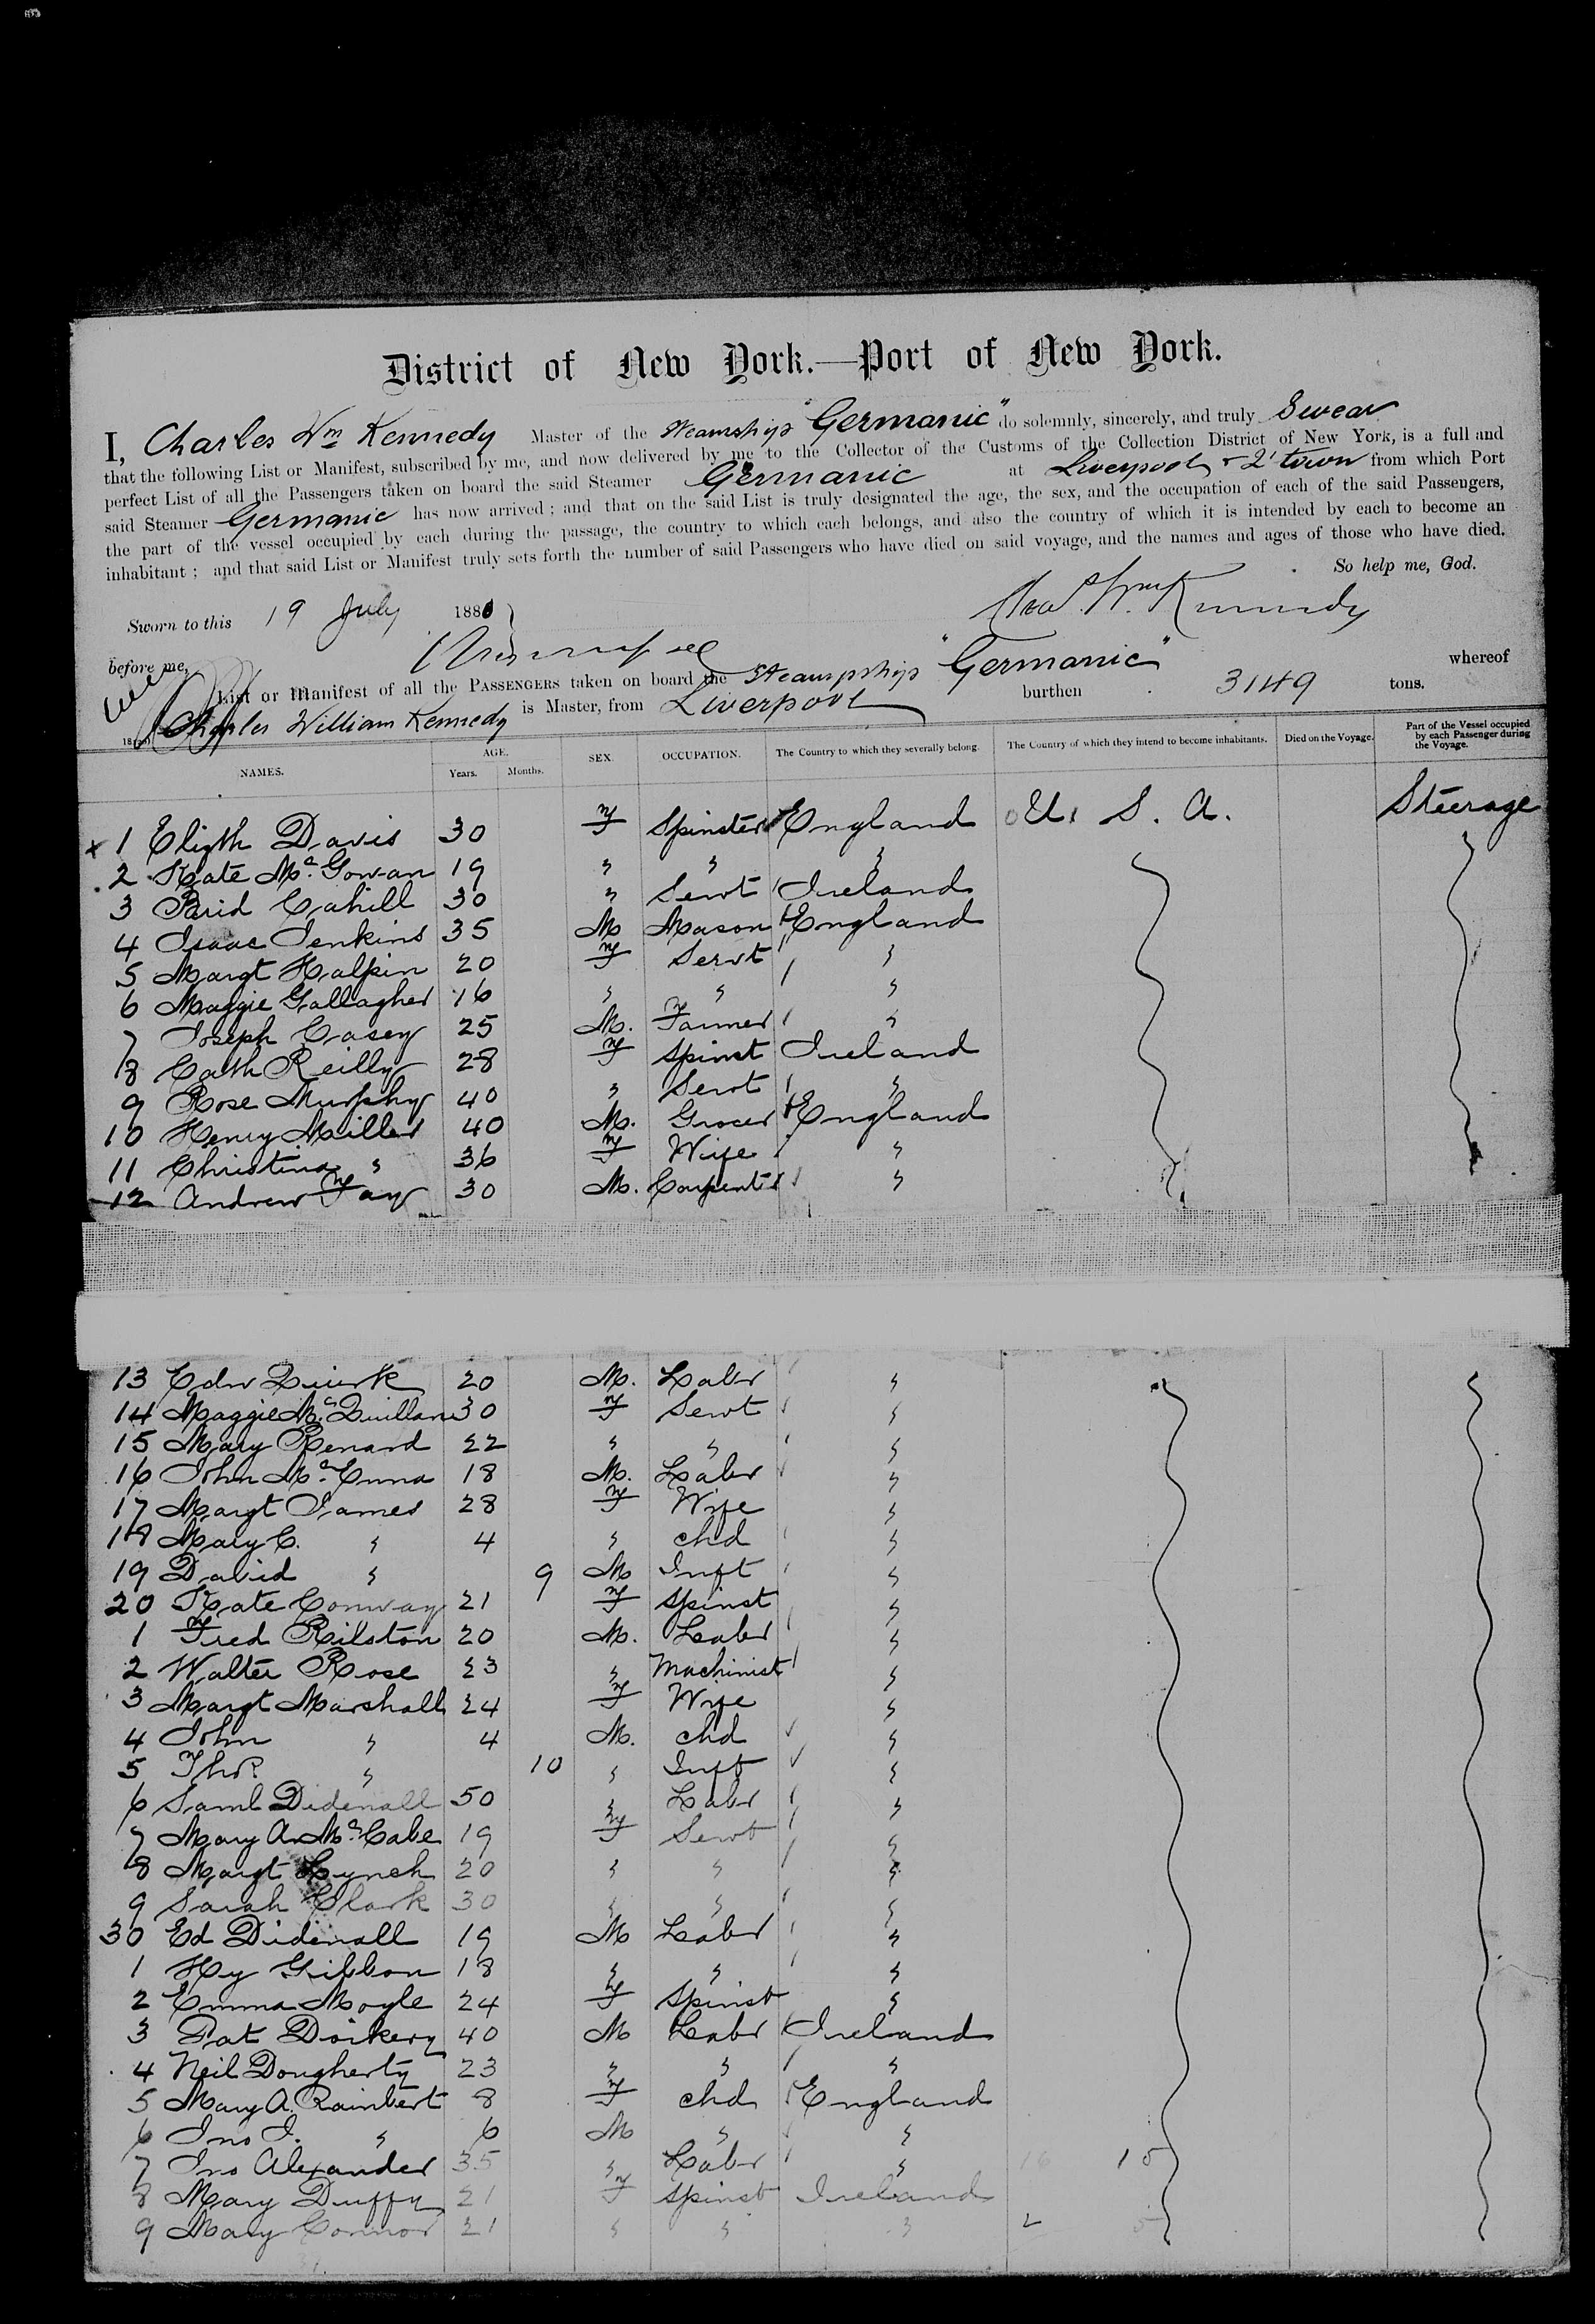 District of New York.—Port of New York.
I, Charles Wm Kennedy Master of the Steamship "Germanic" do solemnly, sincerely, and truly Swear
that the following List or Manifest, subscribed by me, and now delivered by me to the Collector of the Customs of the Collection District of New York, is a full and
perfect List of all the Passengers taken on board the said Steamer Germanic at Liverpool & Q'town from which Port
said Steamer Germanic has now arrived; and that on the said List is truly designated the age, the sex, and the occupation of each of the said Passengers,
the part of the vessel occupied by each during the passage, the country to which each belongs, and also the country of which it is intended by each to become an
inhabitant; and that said List or Manifest truly sets forth the number of said Passengers who have died on said voyage, and the names and ages of those who have died.
So help me, God.
Sworn to this 19 July 1880
Chas. Wm Kennedy
before me,
List or Manifest of all the PASSENGERS taken on board the Steampship "Germanic" whereof
Charles William Kennedy is Master, from Liverpool burthen 3149 tons.
NAMES. AGE. Years. Months. SEX. OCCUPATION. The Country to which they severally belong. The Country of which they intend to become inhabitants. Died on the Voyage. Part of the Vessel occupied by each Passenger during the Voyage.
x 1 Elizth Davis 30 F Spinster England U. S. A. Steerage
2 Kate Mc Gowan 19 " " "
3 Cahill 30 " Servt Ireland
4 Isaac Jenkins 35 M Mason England
5 Margt Halpin 20 F Servt "
6 Maggie Gallagher 16 " " "
7 Joseph Casey 25 M. Farmer "
8 Cath Reilly 28 F Spinst Ireland
9 Rose Murphy 40 " Servt "
10 Henry Miller 40 M. Grocer England
11 Christina " 36 F Wife "
12 Andrew Fay 30 M. Carpenter "
13 Edw Quirk 20 M. Labr "
14 Maggie Mc Quillan 30 F Servt "
15 Mary Renard 22 " " "
16 John Mc Enna 18 M. Labr "
17 Margt James 28 F Wife "
18 Mary C. " 4 " chd "
19 David " 9 M Inft "
20 Kate Conway 21 F Spinst "
1 Fred Rilston 20 M. Labr "
2 Walter Rose 23 " Machinist "
3 Margt Marshall 24 F Wife "
4 John " 4 M. chd "
5 Thos. " 10 " Inft "
6 Saml Didenall 50 " Labr "
7 Mary A Mc Cabe 19 F Servt "
8 Margt Lynch 20 " " "
9 Sarah Clark 30 " " "
30 Ed Didenall 19 M Labr "
1 Hy Gibbon 18 " " "
2 Emma Moyle 24 F Spinst "
3 Pat Dockery 40 M Labr Ireland
4 Neil Dougherty 23 " " "
5 Mary A. Rainbert 8 F chd England
6 Jno J. " 6 M " "
7 Jno Alexander 35 " Labr " 16 15
8 Mary Duffy 21 F Spinst Ireland
9 Mary Connor 21 " " " 2 5